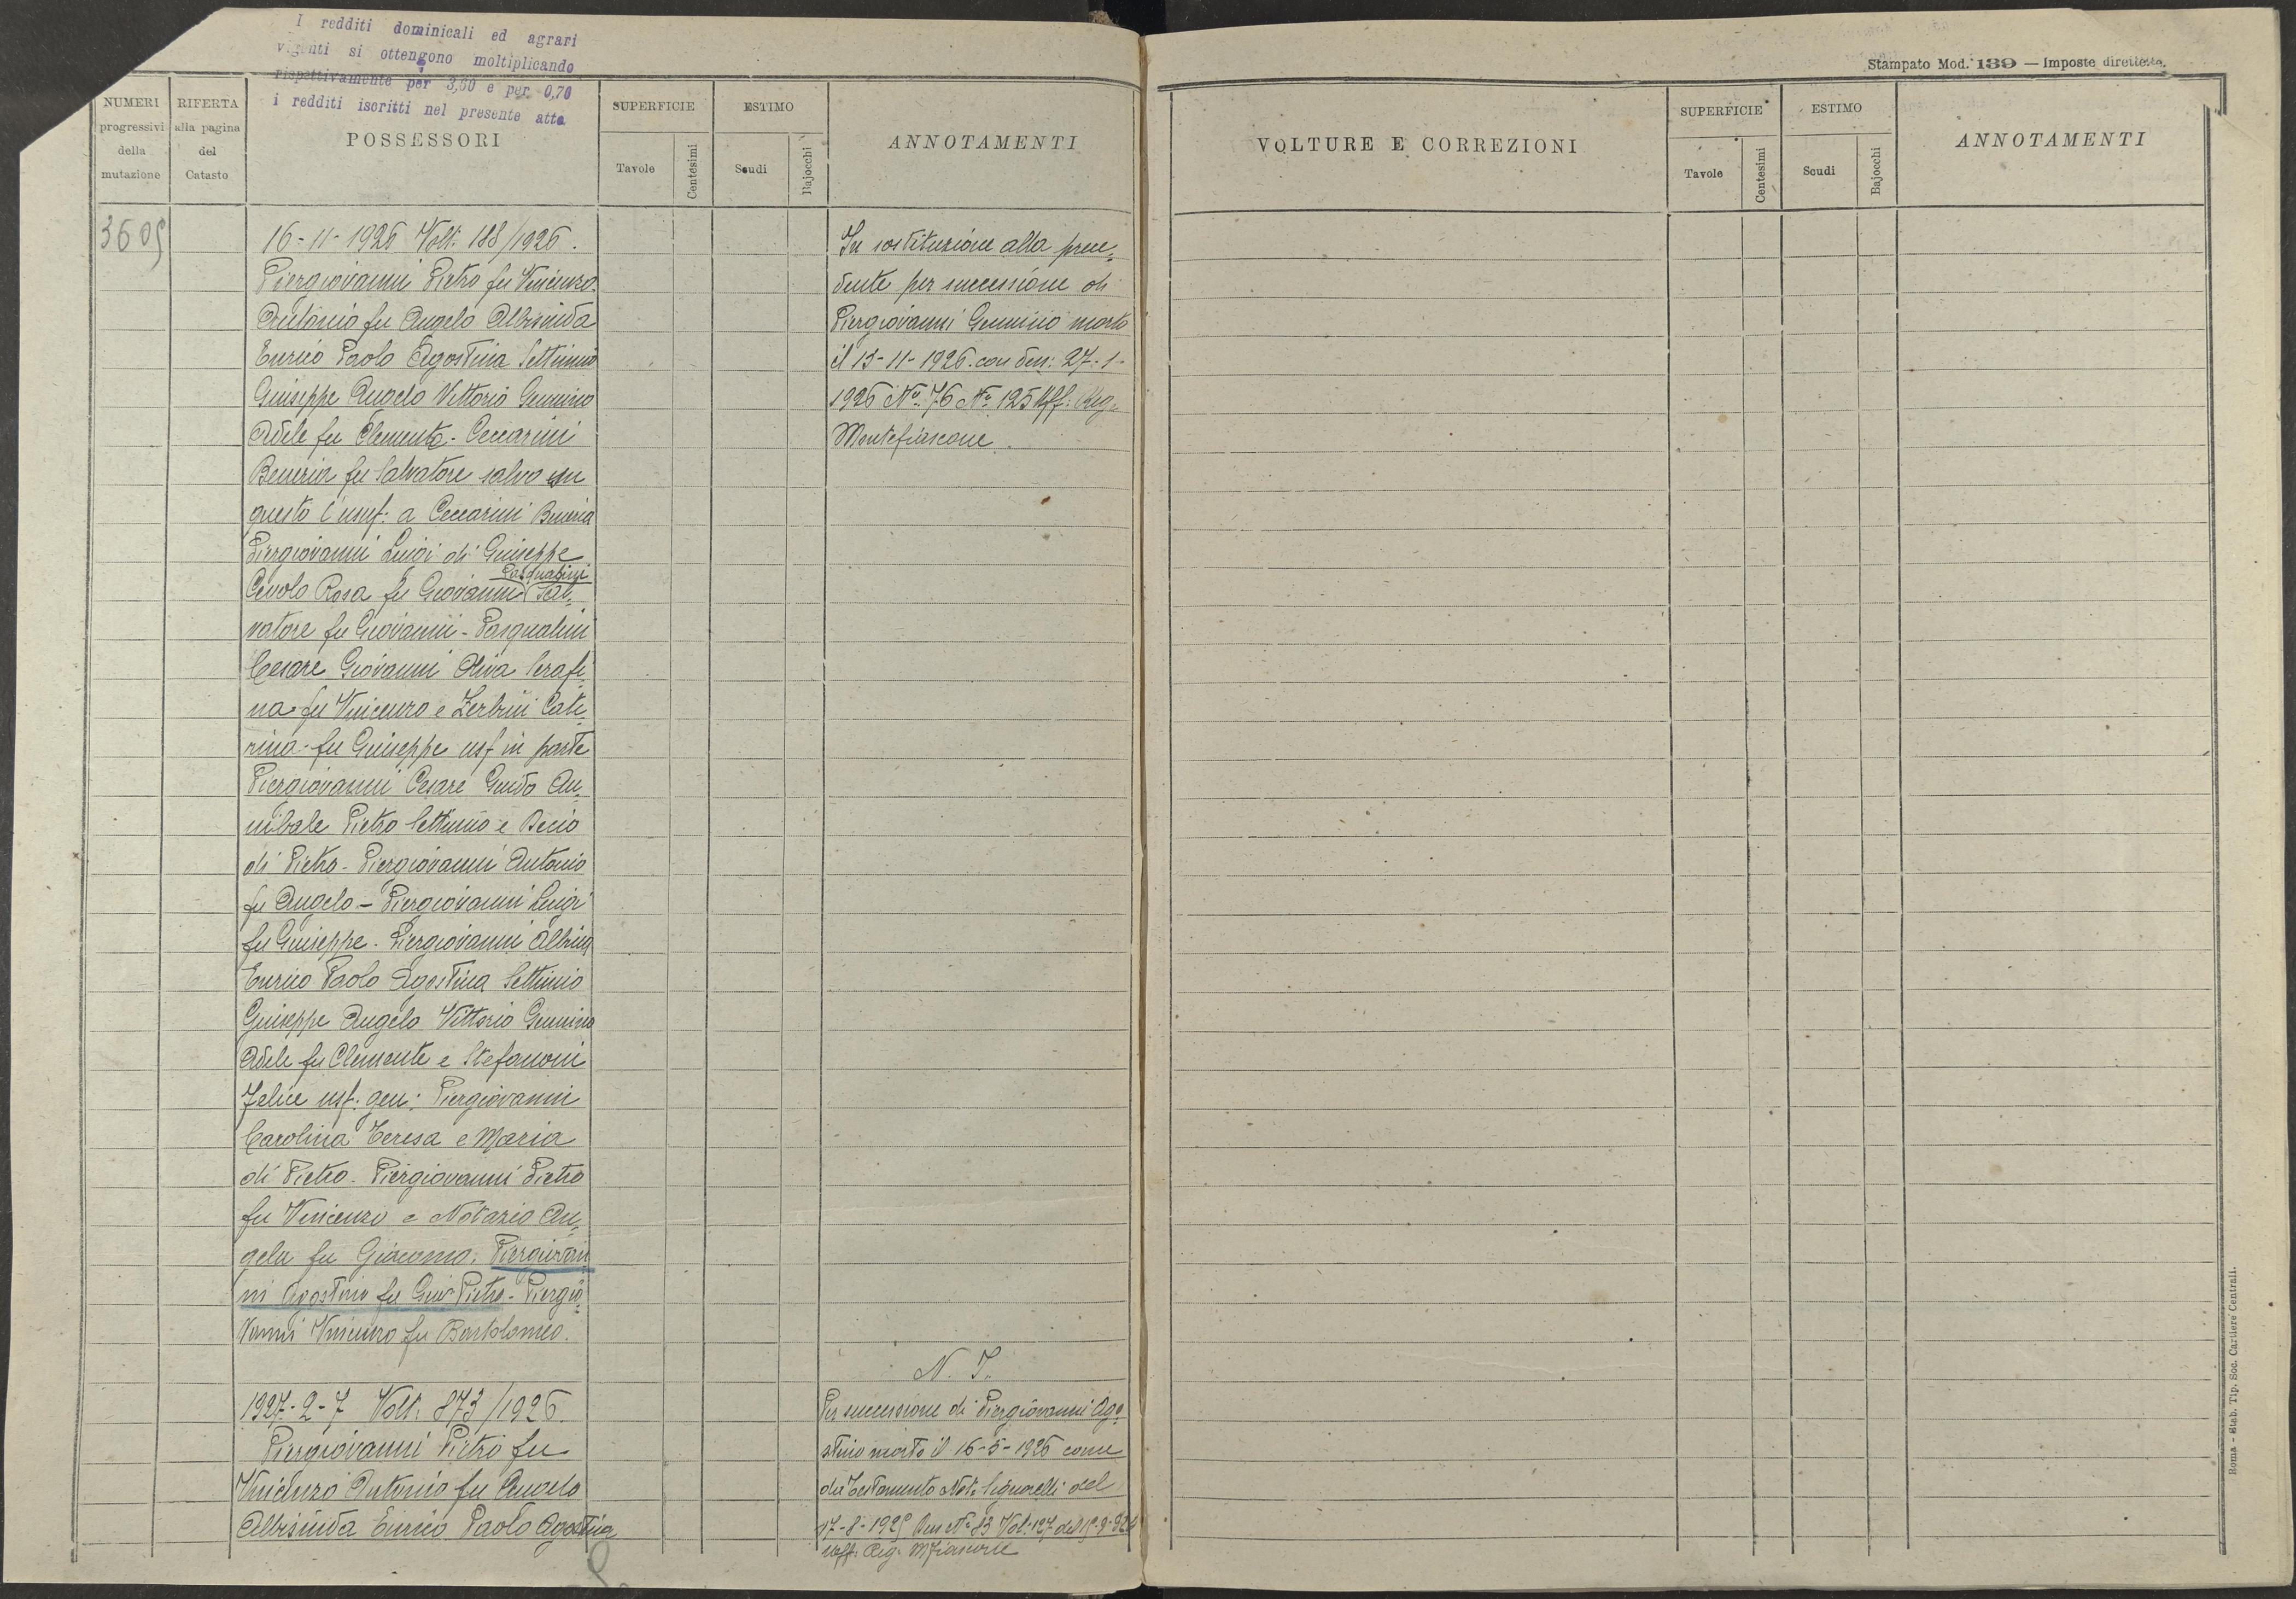 I redditi dominicali ed agrari
vigenti si ottengono moltiplicando
rispettivamente per 3,60 e per 0,70
i redditi iscritti nel presente atto
Stampato Mod. 139 — Imposte dirette.
NUMERI
progressivi
della
mutazione
RIFERTA
alla pagina
del
Catasto
POSSESSORI
SUPERFICIE
Tavole
Centesimi
ESTIMO
Scudi
Bajocchi
ANNOTAMENTI
VOLTURE E CORREZIONI
SUPERFICIE
Tavole
Centesimi
ESTIMO
Scudi
Bajocchi
ANNOTAMENTI
3605
16-11-1926 Volt. 188/1926.
Piergiovanni Pietro fu Vincenzo.
Antonio fu Angelo Albisinda
Enrico Paolo Agostina Settimio
Giuseppe Angelo Vittorio Gemino
Adele fu Clemente - Ceccarini
fu Salvatore salvo su
questo l'usuf: a Ceccarini
Piergiovanni Luigi di Giuseppe
Pasqualini
Rosa fu Giovanni Sal=
vatore fu Giovanni - Pasqualini
Cesare Giovanni Oliva Serafi=
na fu Vincenzo e Zerbini Cate=
rina fu Giuseppe usf in parte
Piergiovanni Cesare Guido An=
nibale Pietro Settimio e Decio
di Pietro - Piergiovanni Antonio
fu Angelo - Piergiovanni Luigi
fu Giuseppe. Piergiovanni
Enrico Paolo Agostina Settimio
Giuseppe Angelo Vittorio Gemino
Adele fu Clemente e Stefanoni
Felice usf. gen: Piergiovanni
Carolina Teresa e Maria
di Pietro - Piergiovanni Pietro
fu Vincenzo e Notazio An=
gela fu Giacomo. Piergiovan
ni Agostino fu Gio Pietro - Piergio=
vanni Vincenzo fu Bartolomeo.
1927-2-7 Volt. 873/1926.
Piergiovanni Pietro fu
Vincenzo Antonio fu Angelo
Albisinda Enrico Paolo Agostina
In sostituzione alla prece=
dente per successione di
Piergiovanni Gemino morto
il 13-11-1926. con den: 27-1-
1926 N° 76 N° 125 Uff: Reg.
Montefiascone.
N. I.
Per successione di Piergiovanni Ago=
stino morto il 16-5-1926 come
da Testamento Not. Signorelli del
17-8-1925 Den N° 83 Vol. 127 del
Uff. Reg. MFiascone
Roma - Stab. Tip. Soc. Cartiere Centrali.